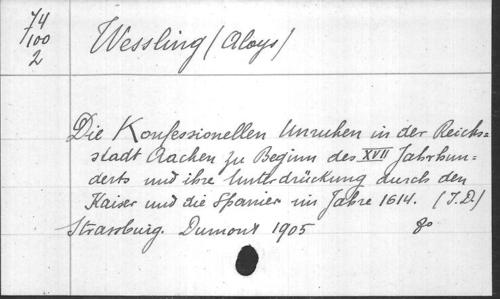 74
/100
2
Wessling (Aloys)
Die Konfessionellen Unruhen in der Reichs=
stadt Aachen zu Beginn des XVII Jahrhun=
derts und ihre Unterdrückung durch den
Kaiser und die Spanier im Jahre 1614. (I.D.)
Strassburg. Dumont 1905 8o